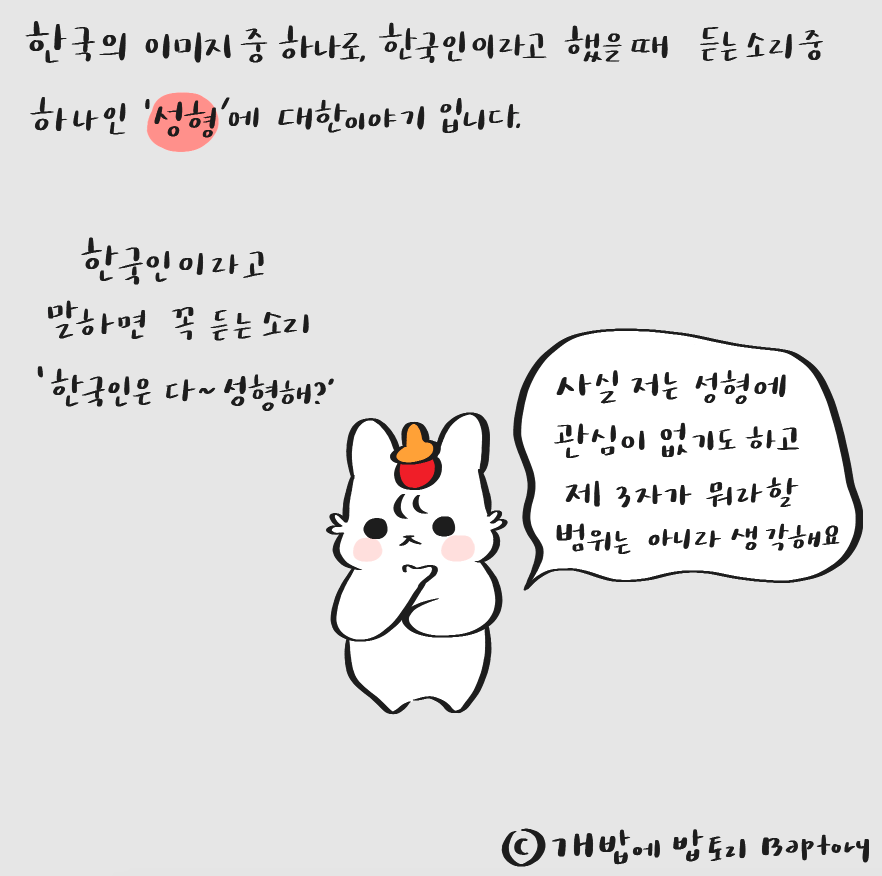 한국의 이미지 중 하나로, 한국인이라고 했을 때 듣는 소리 중
하나인 '성형'에 대한 이야기 입니다.
한국인이라고
말하면 꼭 듣는 소리
'한국인은 다~ 성형해?'
사실 저는 성형에
관심이 없기도 하고
제 3자가 뭐라할
범위는 아니라 생각해요
© 개밥에 밥토리 Baptory